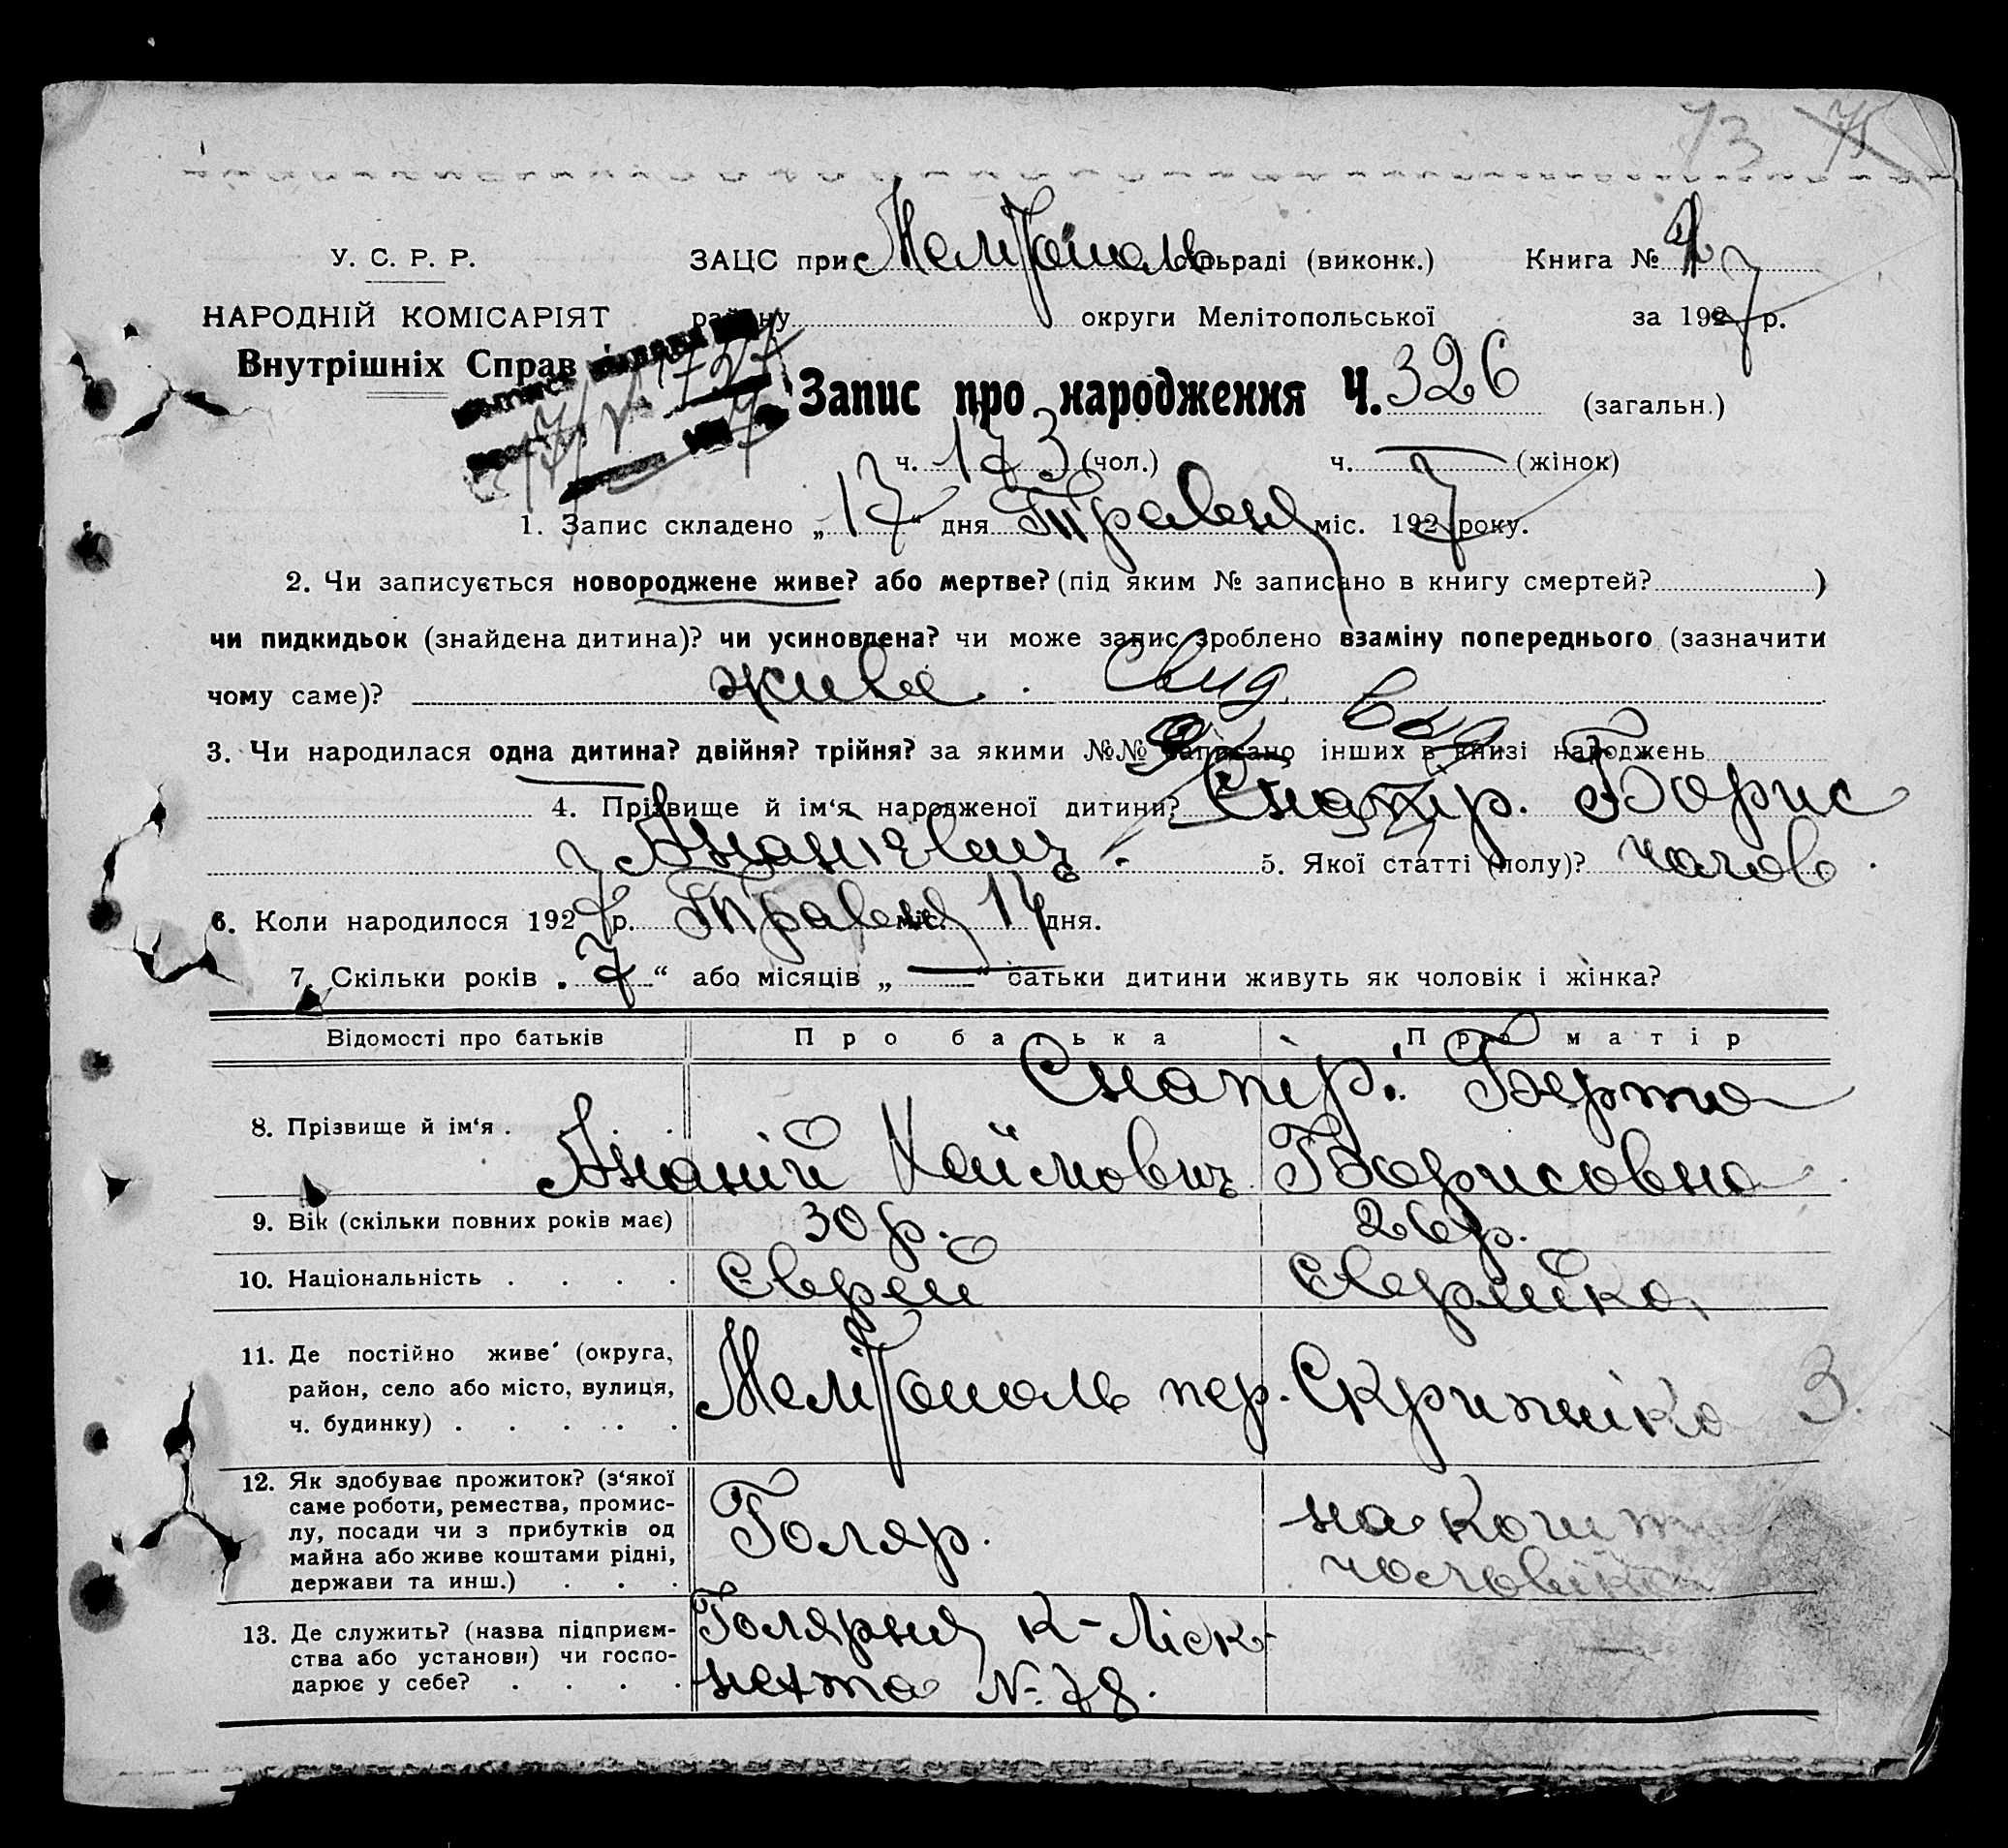 73 75
У. С. Р. Р. ЗАЦС при Мелітополь сільраді (виконк.) Книга №
НАРОДНІЙ КОМІСАРІЯТ району округи Мелітопольської за 1927 р.
Внутрішніх Справ
Запис про народження Ч. 326 (загальн.)
ч. 173 (чол.) ч. — (жінок)
1. Запис складено „17“ дня Травня міс. 1927 року.
2. Чи записується новороджене живе? або мертве? (під яким № записано в книгу смертей? )
чи пидкидьок (знайдена дитина)? чи усиновлена? чи може запис зроблено взаміну попереднього (зазначити
чому саме)? живе.
3. Чи народилася одна дитина? двійня? трійня? за якими №№ записано інших в книзі народжень
4. Прізвище й ім‘я народженої дитини? Снапір. Борис
Ананієвич. 5. Якої статті (полу)? чолов.
6. Коли народилося 1927 р. Травня міс. 14 дня.
7. Скільки років „7“ або місяців „—“ батьки дитини живуть як чоловік і жінка?
Відомості про батьків Про батька Про матір
Снапір. Берта
8. Прізвище й ім‘я . Ананій Хаімович Борисовна
9. Вік (скільки повних років має) 30 р. 26 р.
10. Національність . . . . Єврей Єврейка
11. Де постійно живе (округа,
район, село або місто, вулиця, Мелітополь пер. Скрипніка 3.
ч. будинку) . . . . .
12. Як здобуває прожиток? (з‘якої
саме роботи, ремества, промис-
лу, посади чи з прибутків од Голяр. на кошти
майна або живе коштами рідні, чоловіка
держави та инш.) . . .
13. Де служить? (назва підприєм- Голярня к-
ства або установи) чи госпо-
дарює у себе? . . . . № 78.